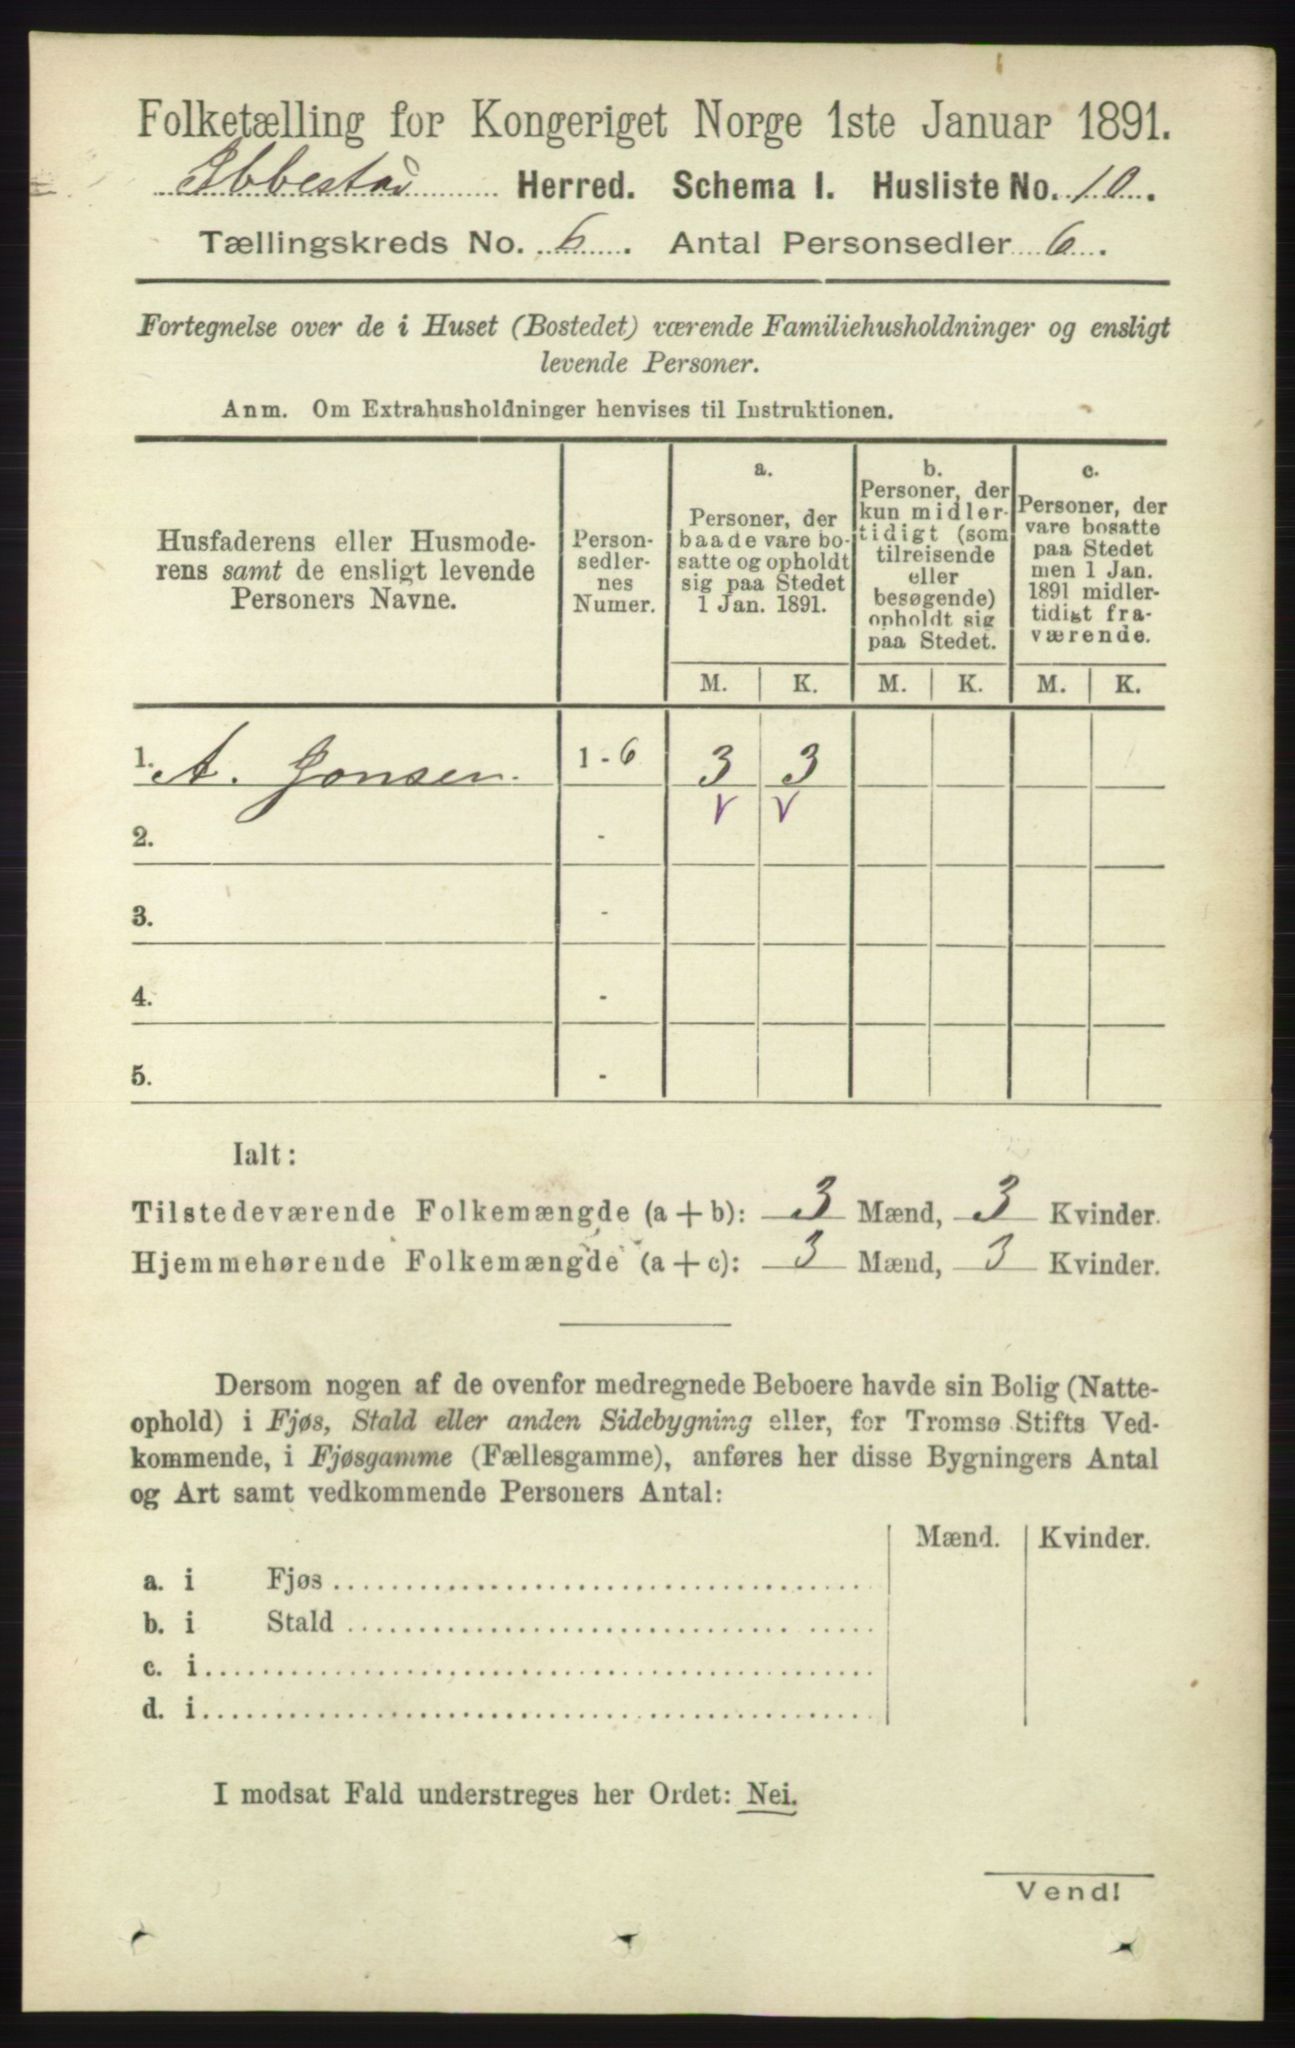 Folketælling for Kongeriget Norge 1ste Januar 1891.
Ibbestad Herred. Schema I. Husliste No. 10.
Tællingskreds No. 6. Antal Personsedler 6.
Fortegnelse over de i Huset (Bostedet) værende Familiehusholdninger og ensligt
levende Personer.
Anm. Om Extrahusholdninger henvises til Instruktionen.
Husfaderens eller Husmode-
rens samt de ensligt levende
Personers Navne.
Person-
sedler-
nes
Numer.
a.
Personer, der
baade vare bo-
satte og opholdt
sig paa Stedet
1 Jan. 1891.
b.
Personer, der
kun midler-
tidigt (som
tilreisende
eller
besøgende)
opholdt sig
paa Stedet.
c.
Personer, der
vare bosatte
paa Stedet
men 1 Jan.
1891 midler-
tidigt fra-
værende.
M. K. M. K. M. K.
1. A. Jonsen. 1 - 6 3 3
2. -
3. -
4. -
5. -
Ialt:
Tilstedeværende Folkemængde (a + b): 3 Mænd, 3 Kvinder.
Hjemmehørende Folkemængde (a + c): 3 Mænd, 3 Kvinder.
Dersom nogen af de ovenfor medregnede Beboere havde sin Bolig (Natte-
ophold) i Fjøs, Stald eller anden Sidebygning eller, for Tromsø Stifts Ved-
kommende, i Fjøsgamme (Fællesgamme), anføres her disse Bygningers Antal
og Art samt vedkommende Personers Antal:
Mænd. Kvinder.
a. i Fjøs
b. i Stald
c. i
d. i
I modsat Fald understreges her Ordet: Nei.
Vend!